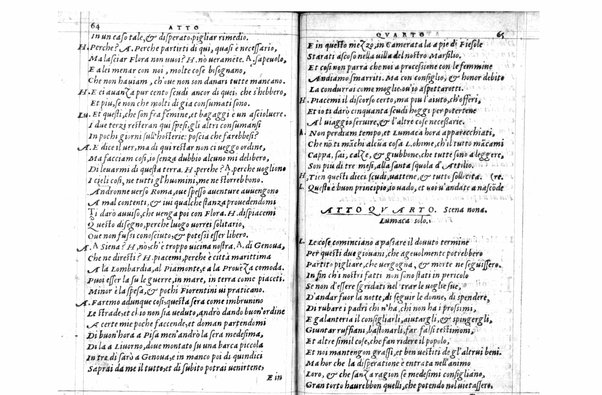 64 ATTO
In un caso tale, & disperato, pigliar rimedio.
H. Perche? A. Perche partirti di qui, quasi è necessario,
Ma lasciar Flora non vuoi? H. nò veramete. A. sapevolo,
E a lei menar con noi, molte cose bisognano,
Che non habiam, ch'cui non son danari tutte mancano.
H. E ci auanza pur cento scudi ancor di quei, che s'hebbero,
Et piu, se non che molti di gia consumati sono.
Lu. Et questi, che son fra femine, et bagaggi è un asciolvere.
I due terzi resteran qui spesi, gli altri consumansi
In pochi giorni sull'hosterie: poscia che farebbesi?
A. E dice il uer, ma di qui restar non ci ueggo ordine,
Ma facciam cosi, io senza dubbio alcuno mi delibero,
Di leuarmi di questa terra. H. perche? A. perche uogliono
I cieli cosi, ne tutti gl'huomini, me ne storrebbeno.
Andronne verso Roma, vue spesso auenture auuengono
A mal contenti, & iui qualche stanza prouedendimi
Ti darò auuiso, che uenga poi con Flora. H. dispiacemi
Questo disegno, perche luogo vorrei solitario,
Oue non fussi conosciuto, & potessi esser libero.
A. A Siena? H. nò, ch'è troppo uicina nostra. A. di Genoua,
Che ne diresti? H. piacemi, perche è città marittima
A la Lombardia, al Piamonte, e a la Prouenza comoda.
Puossi esser la su le guerre, in mare, in terra come piaceti.
Minor è la spesa, & pochi Fiorentini ui praticano.
A. Faremo adunque cosi: questa sera come imbrunino
Le strade, et ch'io non sia veduto, andrò dando buon'ordine
A certe mie poche faccende, et doman partendomi
Di buon'hora a Pisa men'andrò la sera medesima,
Di la a Liuorno, doue montato su una barca piccola
In tre dì sarò a Genoua, e in manco poi di quindici
Saprai da me il tutto, et di subito potrai uenirtene,
E in
QUARTO 65
E in questo mezzo, in Camerata la a pie di Fiesole
Starati ascoso nella uilla del nostro Marsilio,
Et cosi non parra che noi a processione con le femmine
Andiamo smarriti. Ma con consiglio, & honor debito
La condurrai come moglie: ou'io aspettarotti.
H. Piacemi il discorso certo, ma piu l'aiuto, ch'offeri,
Et io ti darò cinquanta scudi hoggi per potertene
Al uiaggio seruire, & a l'altre cose necessarie.
A. Non perdiam tempo, et Lumaca hora apparecchiati,
Che nò ti màchi alcùa cosa L. ohime, ch'il tutto mãcami
Cappa, sai, calze, & giubbone, che tutte sono a leggere,
Son piu di tre mesi, alla santa scuola di Attollo.
H. Tien questi dieci scudi, uattene, & tutto sollecita. (re.
L. Questo è buon principio, io uado, et uoi v'andate a nascõde
ATTO QVARTO. Scena nona.
Lumaca solo.
L. Le cose cominciano a passare il douuto termine
Per questi due giouani, che ageuolmente potrebbero
Partito pigliare, che uergogna, & morte ne seguissero.
In fin ch'i nostri fatti non sono stati in pericolo
Se non d'essere sgridati nel trar le uoglie sue,
D'andar fuor la notte, di seguir le donne, di spendere,
Di rubare i padri ch'n'ha, chi non ha i prossimi,
E galanteria il consigliarli, aiutargli, & spingergli,
Giuntar ruffiani, bastonarli, far falsi testimoni,
Et altre simil cose, che fan ridere il popolo,
Et noi mantengon grassi, et ben uestiti degl'altrui beni.
Ma hor che la disperatione è entrata nell'animo
Loro, & che senza ragion se medesimi consigliano,
Gran torto haurebbon quelli, che potendo nol uietassero.